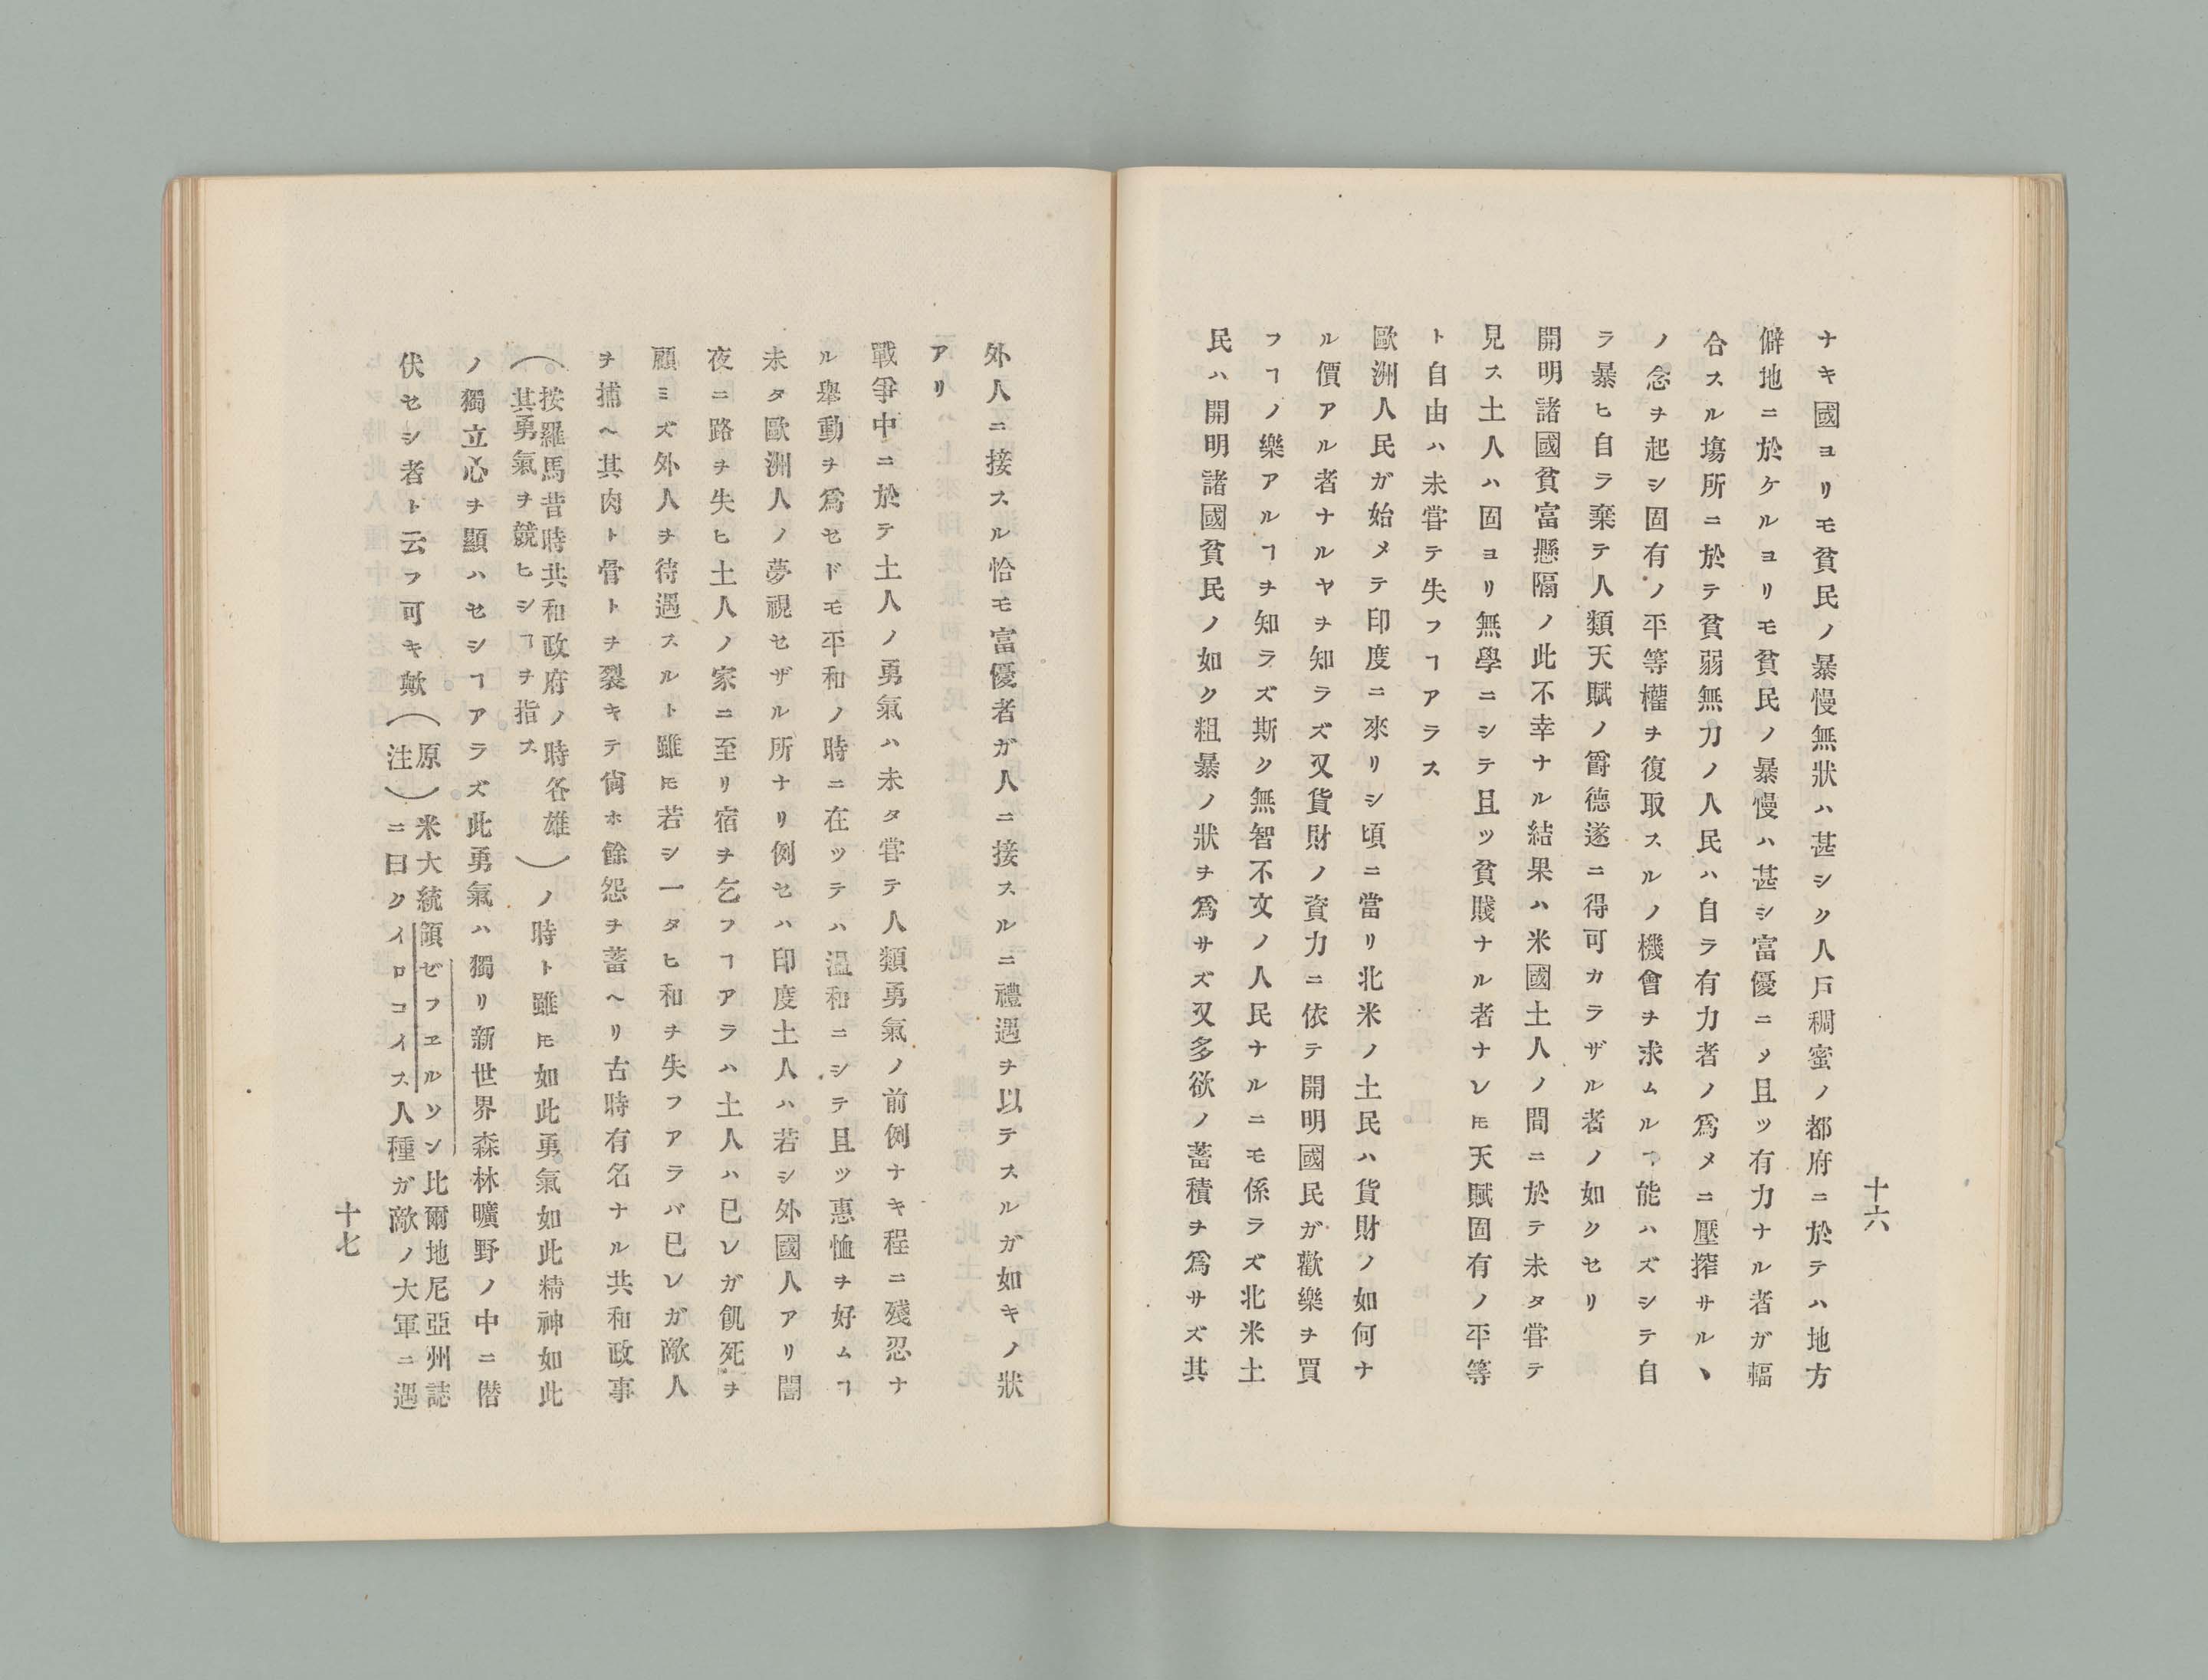 十六
ナキ國ヨリモ貧民ノ暴慢無狀ハ甚シク人戸稠蜜ノ都府ニ於テハ地方
僻地ニ於ケルヨリモ貧民ノ暴慢ハ甚シ富優ニ〆且ツ有力ナル者ガ輻
合スル塲所ニ於テ貧弱無力ノ人民ハ自ラ有力者ノ爲メニ壓搾サルヽ
ノ念ヲ起シ固有ノ平等權ヲ復取スルノ機會ヲ求ムルヿ能ハズシテ自
ラ暴ヒ自ラ棄テ人類天賦ノ爵德遂ニ得可カラザル者ノ如クセリ
開明諸國貧富懸隔ノ此不幸ナル結果ハ米國土人ノ間ニ於テ未タ甞テ
見ス土人ハ固ヨリ無學ニシテ且ツ貧賤ナル者ナレ𪜈天賦固有ノ平等
ト自由ハ未甞テ失フヿアラス
歐洲人民ガ始メテ印度ニ來リシ頃ニ當リ北米ノ土民ハ貨財ノ如何ナ
ル價アル者ナルヤヲ知ラズ又貨財ノ資力ニ依テ開明國民ガ歡樂ヲ買
フヿノ樂アルヿヲ知ラズ斯ク無智不文ノ人民ナルニモ係ラズ北米土
民ハ開明諸國貧民ノ如ク粗暴ノ狀ヲ爲サズ又多欲ノ蓄積ヲ爲サズ其
外人ニ接スル恰モ富優者ガ人ニ接スルニ禮遇ヲ以テスルガ如キノ狀
アリ
戰爭中ニ於テ土人ノ勇氣ハ未タ甞テ人類勇氣ノ前例ナキ程ニ殘忍ナ
ル擧動ヲ爲セドモ平和ノ時ニ在ツテハ溫和ニシテ且ツ惠恤ヲ好ムヿ
未タ歐洲人ノ夢視セザル所ナリ例セハ印度土人ハ若シ外國人アリ闇
夜ニ路ヲ失ヒ土人ノ家ニ至リ宿ヲ乞フヿアラハ土人ハ已レガ飢死ヲ
顧ミズ外人ヲ待遇スルト雖𪜈若シ一タヒ和ヲ失フアラバ已レガ敵人
ヲ捕ヘ其肉ト骨トヲ裂キテ尙ホ餘怨ヲ蓄ヘリ古時有名ナル共和政事
（按羅馬昔時共和政府ノ時各雄
其勇氣ヲ競ヒシヿヲ指ス）ノ時ト雖𪜈如此勇氣如此精神如此
ノ獨立心ヲ顯ハセシヿアラズ此勇氣ハ獨リ新世界森林曠野ノ中ニ僭
伏セシ者ト云フ可キ歟（原注）米大統領ゼフヱルソン比爾地尼亞州誌
ニ曰クイロコイス人種ガ敵ノ大軍ニ遇
十七